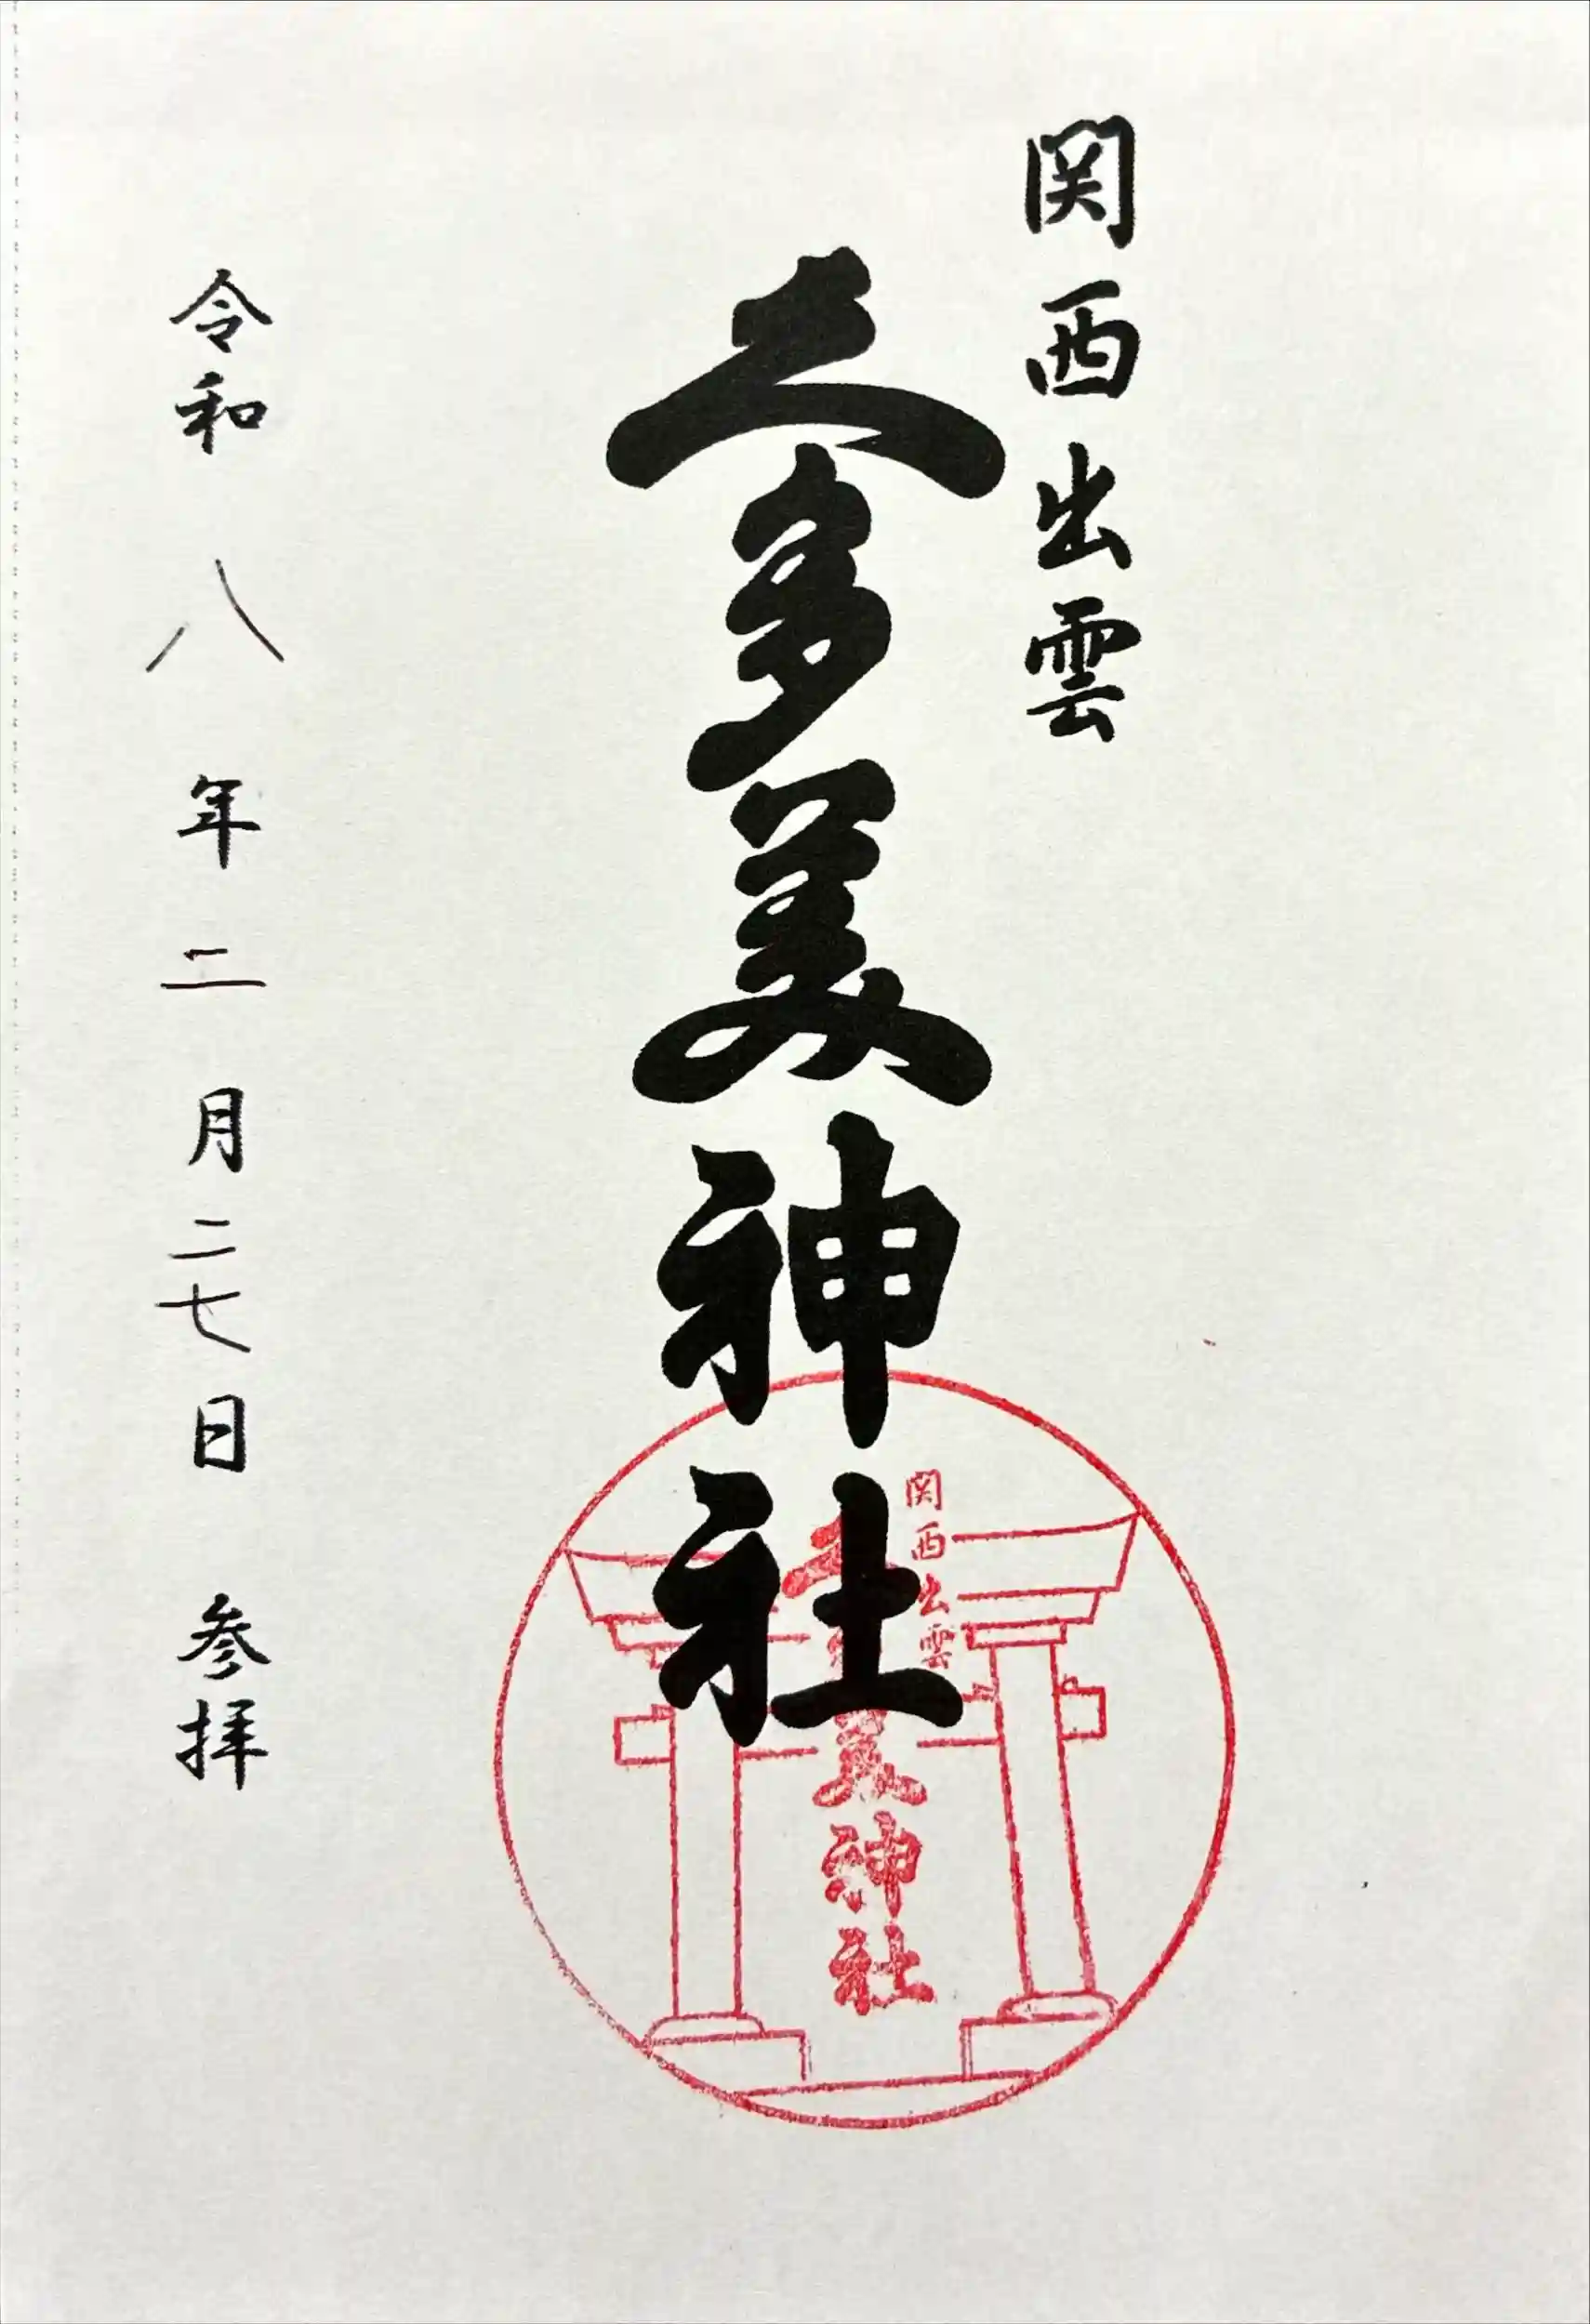 関西出雲
久多美神社
令和八年二月二七日参拝
関西出雲
美神社